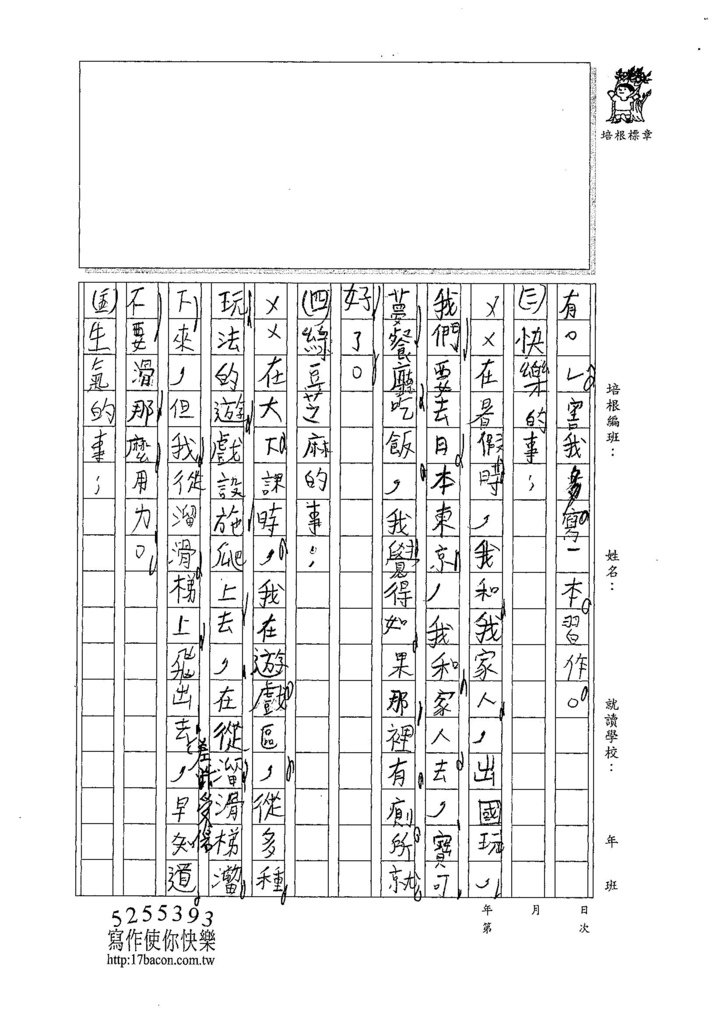 培根標章
培根編班：
姓名：
就讀學校：
年 班
年 月 日
第 次
有。」害我多寫一本習作。
(三)快樂的事；
××在暑假時，我和我家人，出國玩，
我們要去日本東京，我和家人去，寶可
夢餐廳吃飯，我覺得如果那裡有廁所就
好了。
(四)綠豆芝麻的事：
××在大下課時，我在遊戲區，從多種
玩法的遊戲設施爬上去，在從溜滑梯溜
下來，但我從溜滑梯上飛出去，差點受傷，早知道
不要滑那麼用力。
(五)生氣的事；
5255393
寫作使你快樂
http:17bacon.com.tw